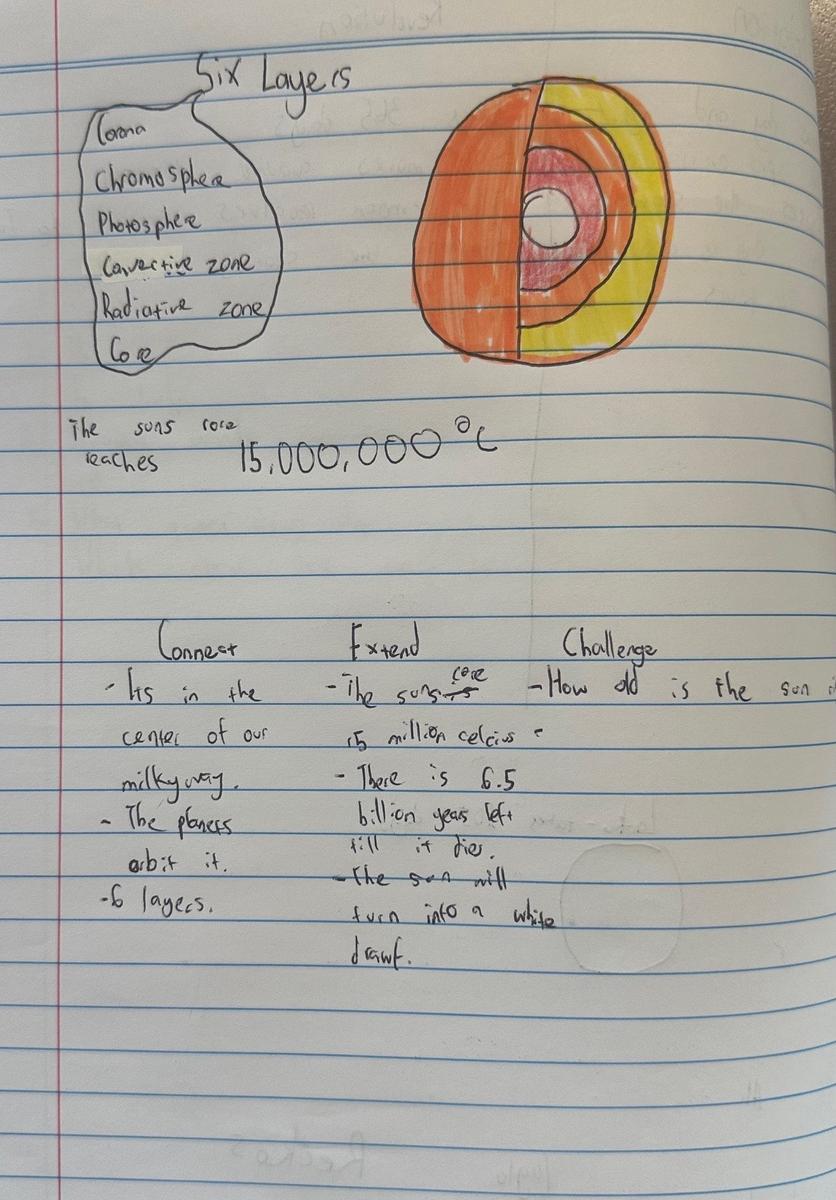 Six Layers
Corona
Chromosphere
Photosphere
Convective zone
Radiative zone
Core
The suns core
reaches 15,000,000 °C
Connect
- Its in the
center of our
milkyway.
- The planets
orbit it.
-6 layers.
Extend
- The suns core
15 million celcius
- There is 6.5
billion years left
till it dies.
- The sun will
turn into a white
drawf.
Challenge
- How old is the sun